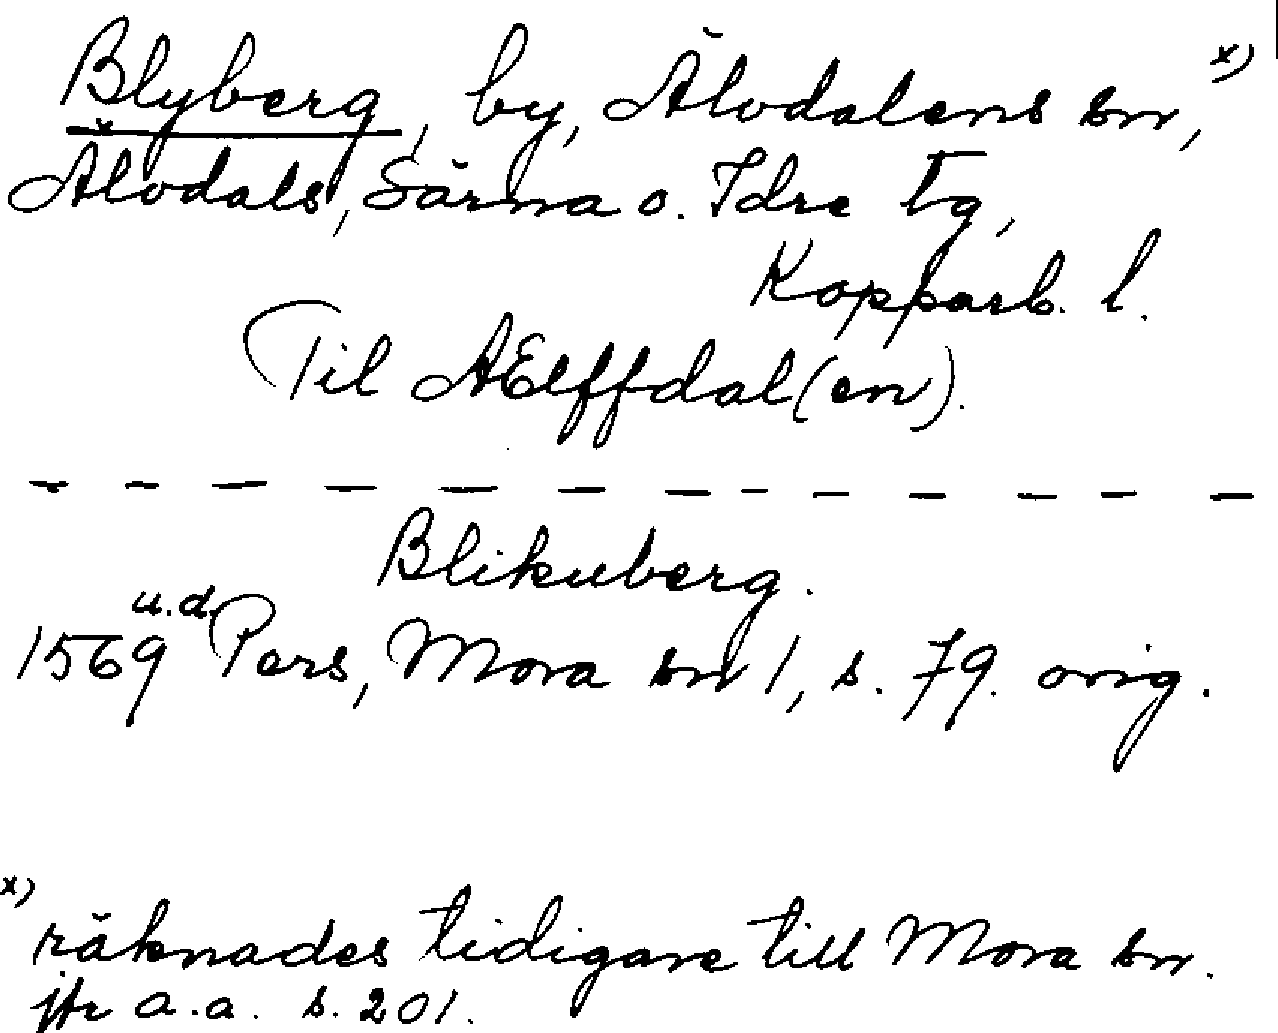 Blyberg, by, Älvdalens sn, x)
Älvdals, Särna o. Idre tg,
Kopparb. l.
Til AElffdal(en).
Blikuberg.
1569 u.d. Pers, Mora sn 1, s. 79. orig.
x) räknades tidigare till Mora sn.
jfr a.a. s. 201.